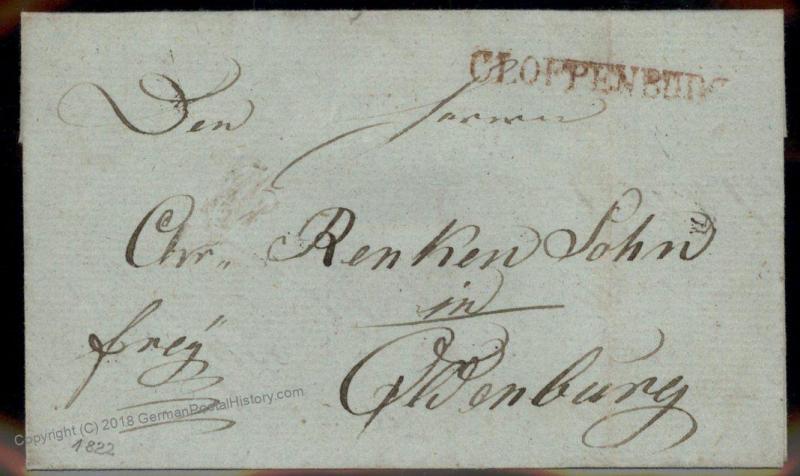 CLOPPENBURG
Den Herrn
Chr. Renken Sohn
in
frey Oldenburg
Copyright (C) 2018 GermanPostalHistory.com
1822